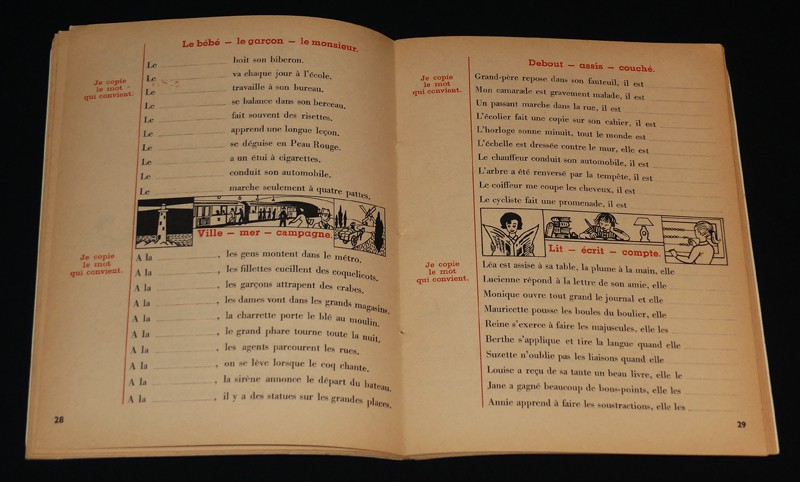 Le bébé — le garçon — le monsieur.
Je copie
le mot
qui convient.
Le boit son biberon.
Le va chaque jour à l'école.
Le travaille à son bureau.
Le se balance dans son berceau.
Le fait souvent des risettes.
Le apprend une longue leçon.
Le se déguise en Peau Rouge.
Le a un étui à cigarettes.
Le conduit son automobile.
Le marche seulement à quatre pattes.
Ville — mer — campagne.
Je copie
le mot
qui convient.
A la , les gens montent dans le métro.
A la , les fillettes cueillent des coquelicots.
A la , les garçons attrapent des crabes.
A la , les dames vont dans les grands magasins.
A la , la charrette porte le blé au moulin.
A la , le grand phare tourne toute la nuit.
A la , les agents parcourent les rues.
A la , on se lève lorsque le coq chante.
A la , la sirène annonce le départ du bateau.
A la , il y a des statues sur les grandes places.
28
Debout — assis — couché.
Je copie
le mot
qui convient.
Grand-père repose dans son fauteuil, il est
Mon camarade est gravement malade, il est
Un passant marche dans la rue, il est
L'écolier fait une copie sur son cahier, il est
L'horloge sonne minuit, tout le monde est
L'échelle est dressée contre le mur, elle est
Le chauffeur conduit son automobile, il est
L'arbre a été renversé par la tempête, il est
Le coiffeur me coupe les cheveux, il est
Le cycliste fait une promenade, il est
Lit — écrit — compte.
Je copie
le mot
qui convient.
Léa est assise à sa table, la plume à la main, elle
Lucienne répond à la lettre de son amie, elle
Monique ouvre tout grand le journal et elle
Mauricette pousse les boules du boulier, elle
Reine s'exerce à faire les majuscules, elle les
Berthe s'applique et tire la langue quand elle
Suzette n'oublie pas les liaisons quand elle
Louise a reçu de sa tante un beau livre, elle le
Jane a gagné beaucoup de bons-points, elle les
Annie apprend à faire les soustractions, elle les
29